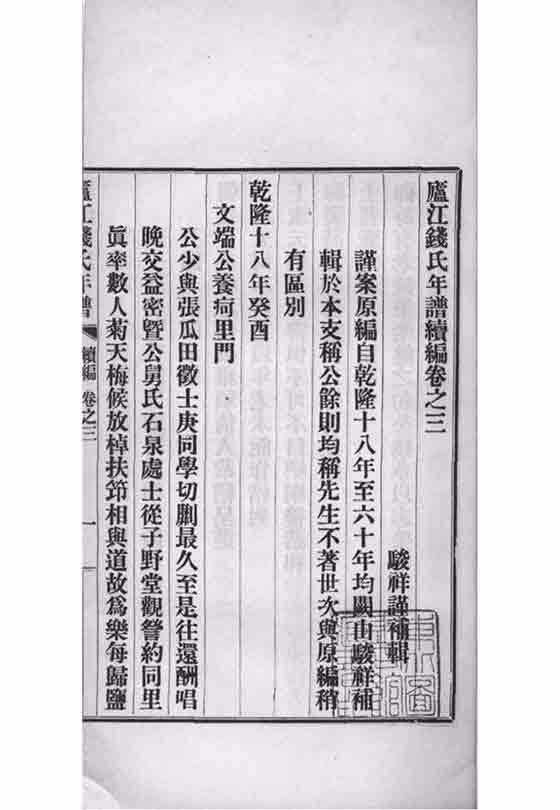 廬江錢氏年譜續編卷之三
駿祥謹補輯
謹案原編自乾隆十八年至六十年均闕由駿祥補
輯於本支稱公餘則均稱先生不著世次與原編稍
有區別
乾隆十八年癸酉
文端公養疴里門
公少與張瓜田徵士庚同學切劘最久至是往還酬唱
晚交益密暨公舅氏石泉處士從子野堂觀詧約同里
眞率數人菊天梅候放棹扶筇相與道故爲樂每歸鹽
廬江錢氏年譜 續編 卷之三 一